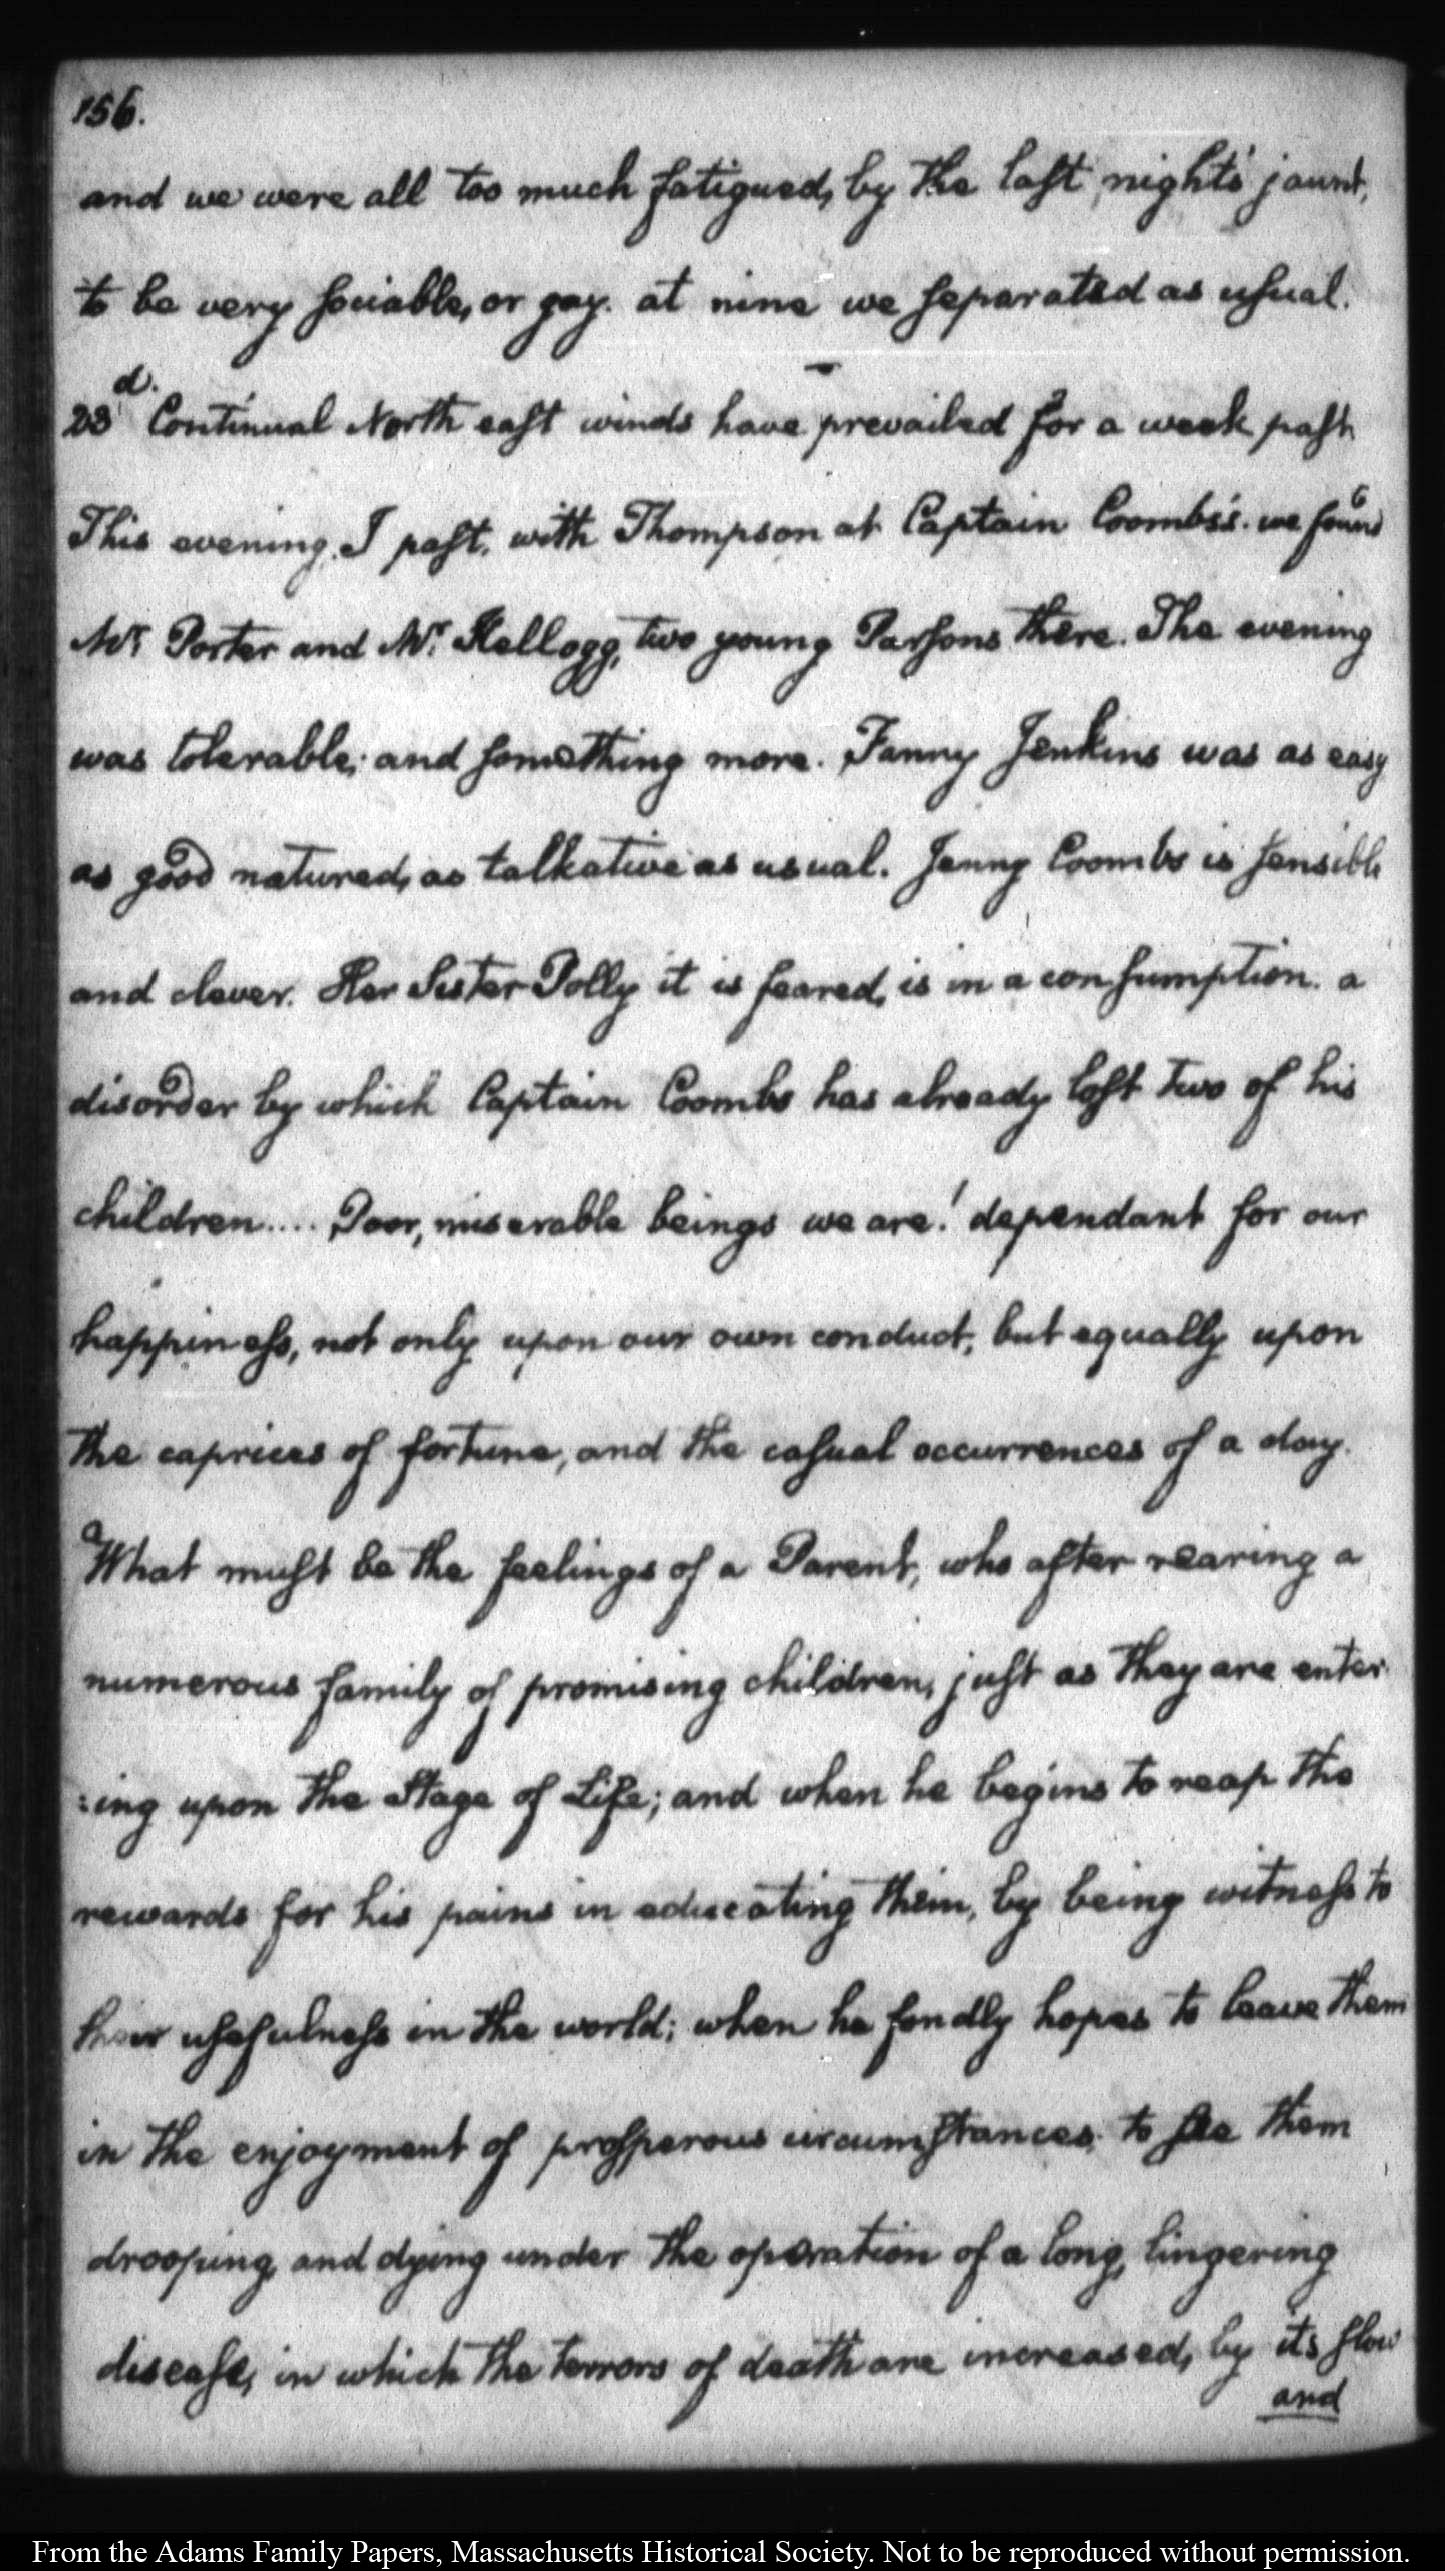 156.
and we were all too much fatigued, by the last nights' jaunt,
to be very sociable, or gay. at nine we separated as usual.
23d. Continual North east winds have prevailed for a week past
This evening I past, with Thompson at Captain Coombs's. we found
Mr. Porter and Mr. Kellogg, two young Parsons there. The evening
was tolerable; and something more. Fanny Jenkins was as easy
as good natured, as talkative as usual. Jenny Coombs is sensible
and clever. Her Sister Polly it is feared, is in a consumption. a
disorder by which Captain Coombs has already lost two of his
children.... Poor, miserable beings we are! dependant for our
happiness, not only upon our own conduct, but equally upon
the caprices of fortune, and the casual occurrences of a day.
What must be the feelings of a Parent, who after rearing a
numerous family of promising children, just as they are enter
:ing upon the Stage of Life; and when he begins to reap the
rewards for his pains in educating them, by being witness to
their usefulness in the world; when he fondly hopes to leave them
in the enjoyment of prosperous circumstances, to see them
drooping, and dying under the operation of a long, lingering
disease, in which the terrors of death are increased, by its slow
and
From the Adams Family Papers, Massachusetts Historical Society. Not to be reproduced without permission.